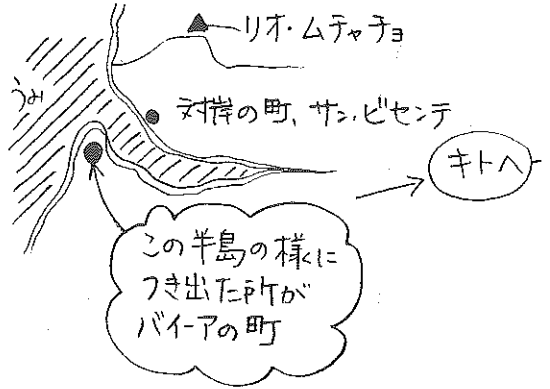 リオ・ムチャチョ
うみ
対岸の町、サン・ビセンテ
キトへ
この半島の様に
つき出た所が
バイーアの町